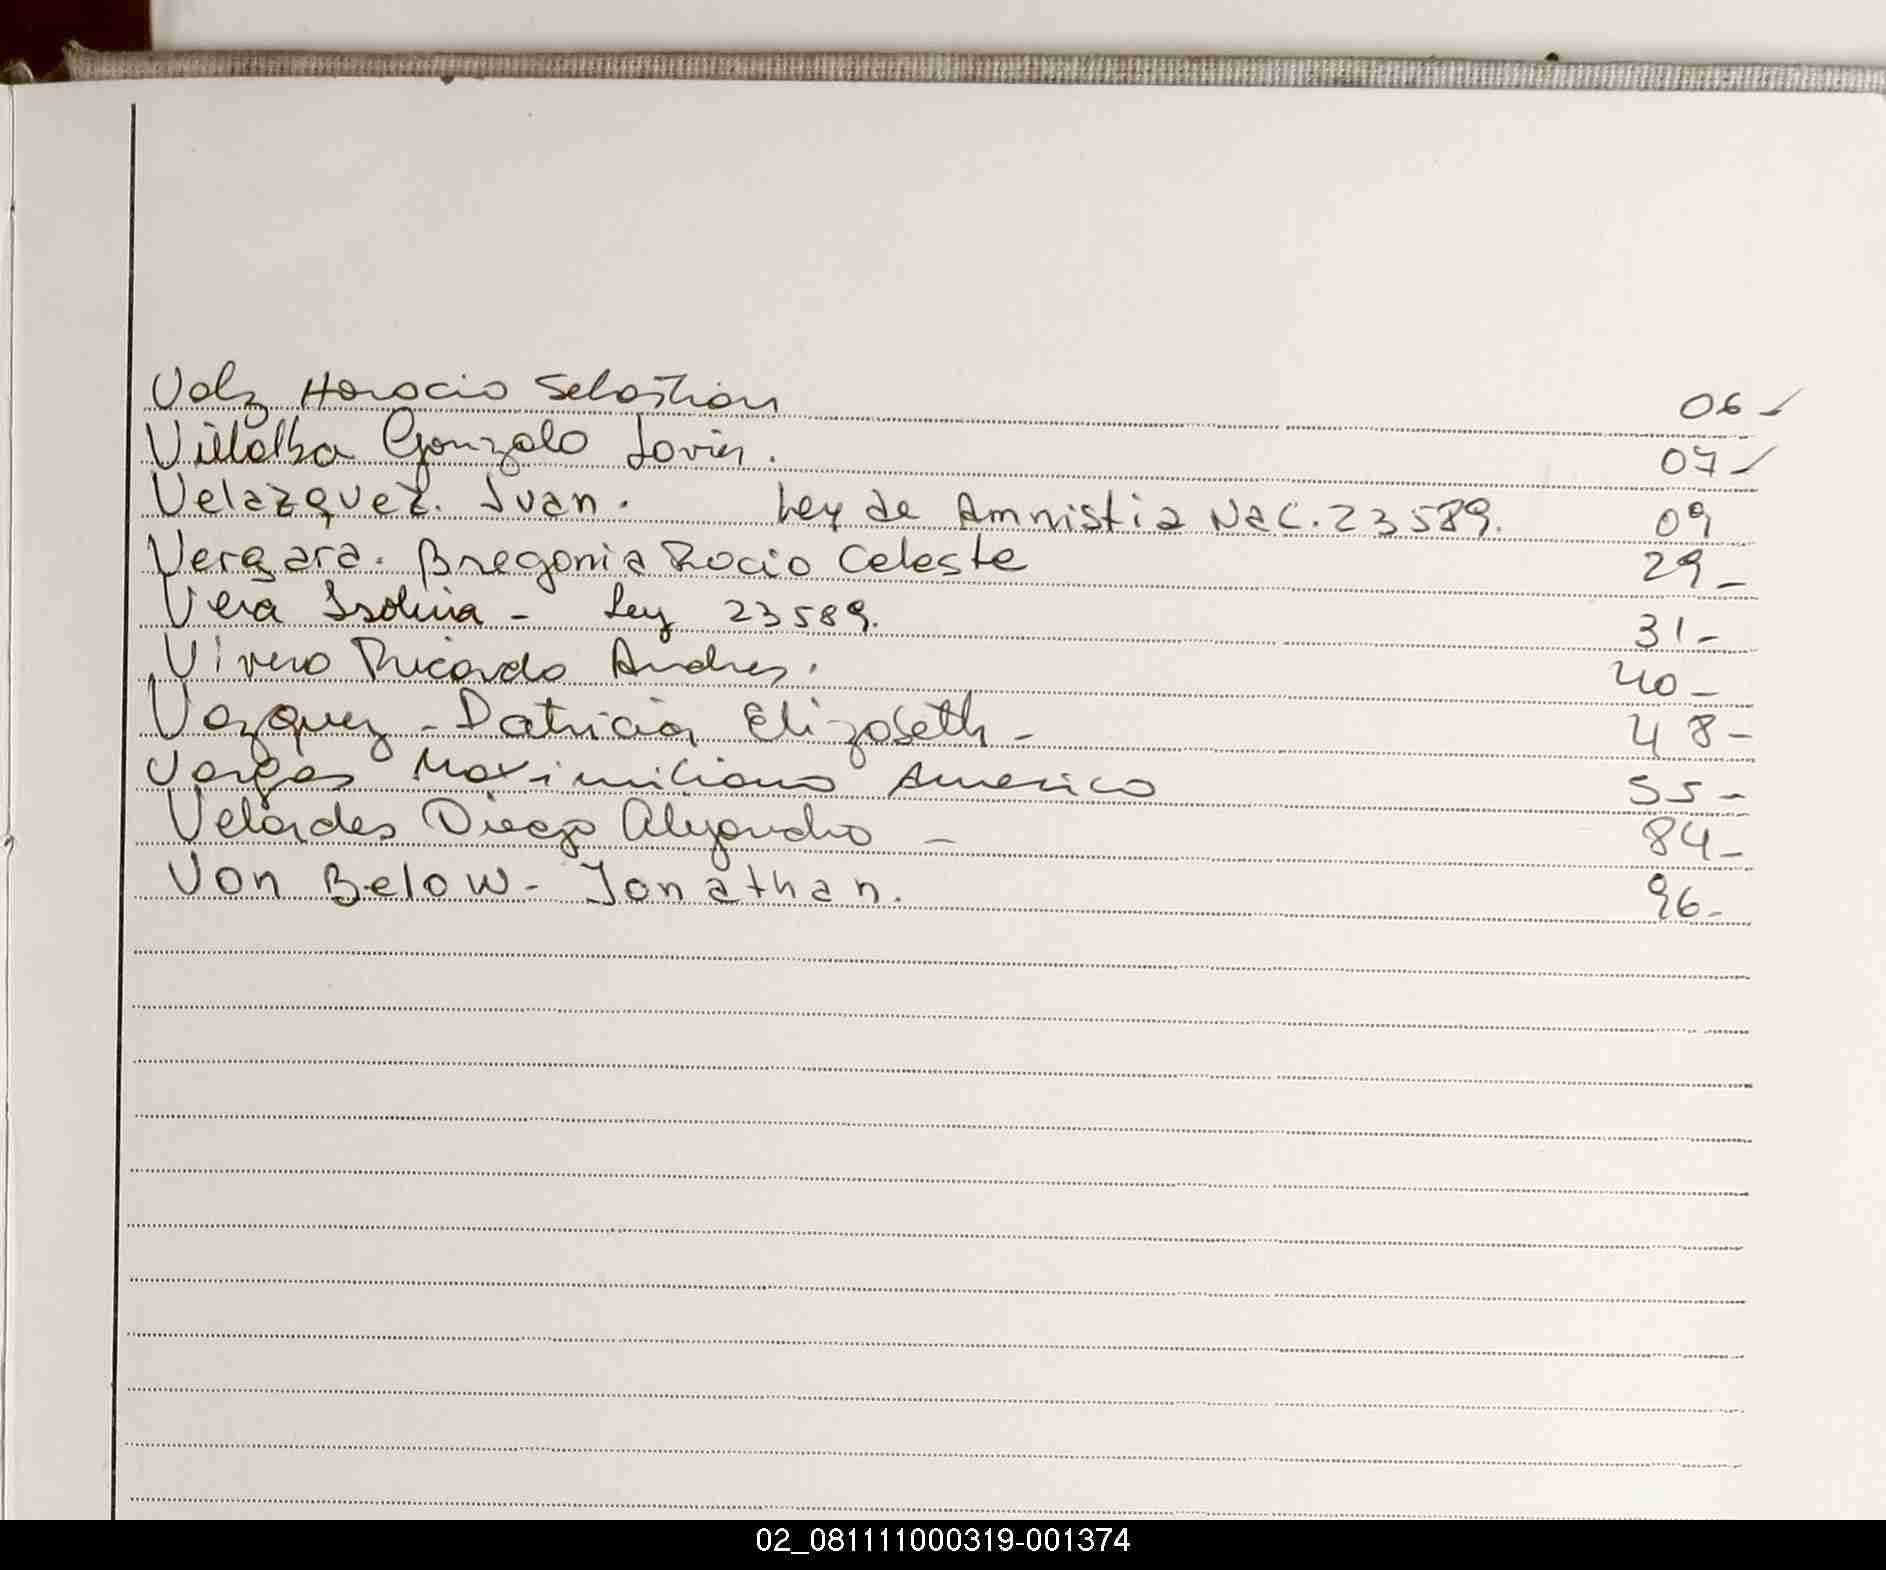 Volz Horacio Sebastian 06 ✓
Villalba Gonzalo Javier. 07 ✓
Velazquez. Juan. Ley de Amnistia Nac. 23589. 09
Vergara. Bregonia Rocio Celeste 29 -
Vera Isolina - Ley 23589. 31 -
Vivero Ricardo Andres. 40 -
Vazquez - Patricia Elizabeth - 48 -
Vargas Maximiliano Americo 55 -
Velardes Diego Alejandro - 84 -
Von Below - Jonathan. 96 -
02_081111000319-001374